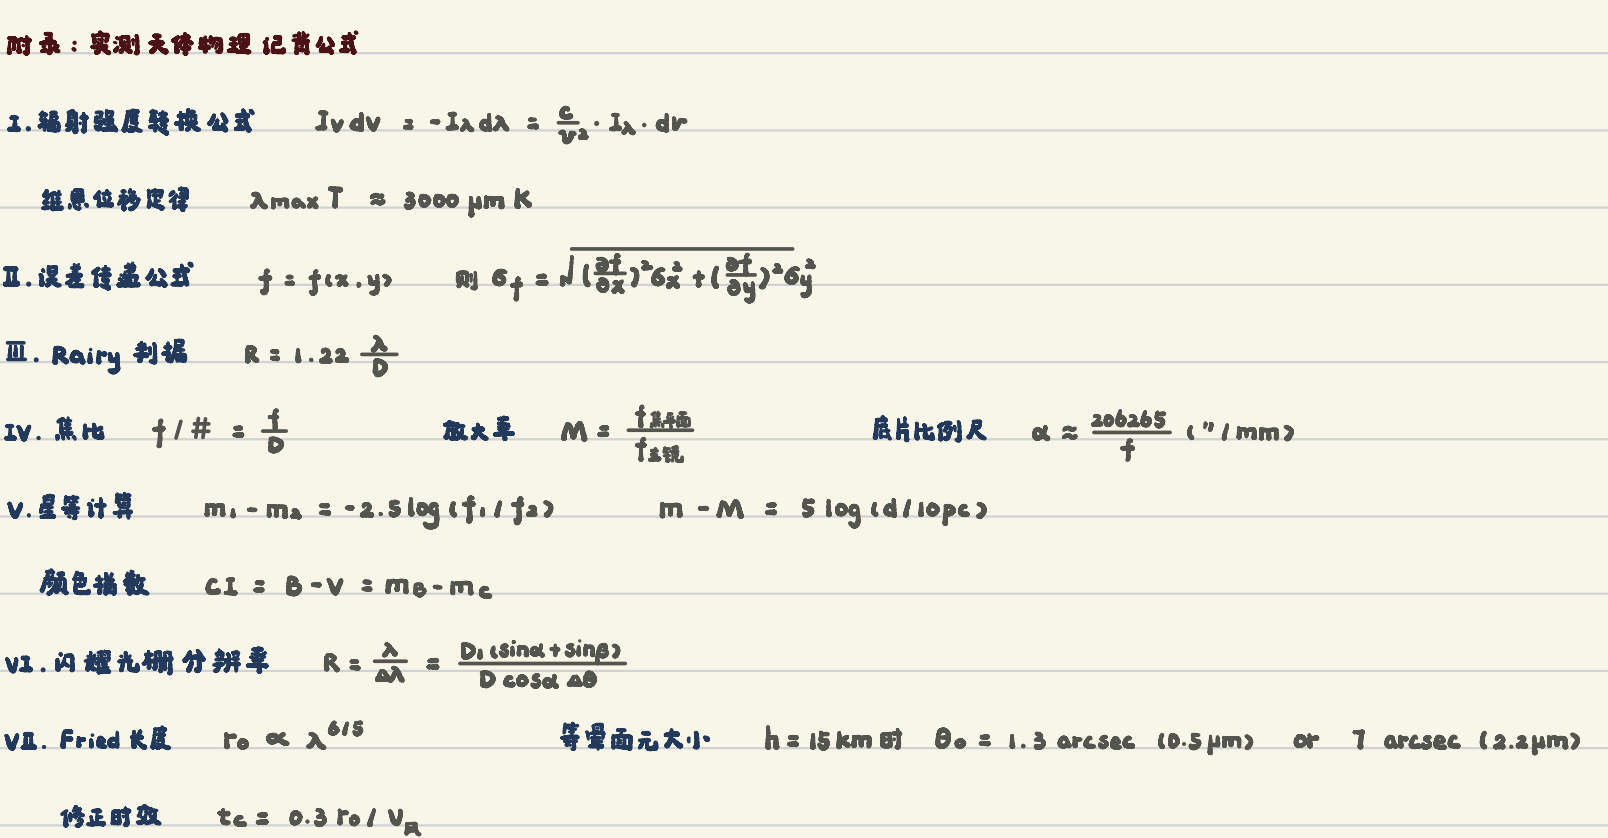 附录：实测天体物理 记背公式
I. 辐射强度转换公式 Iνdν = -Iλdλ = c/ν² · Iλ · dν
维恩位移定律 λmax T ≈ 3000 μm K
II. 误差传递公式 f = f(x, y) 则 σf = √((∂f/∂x)²σx² + (∂f/∂y)²σy²)
III. Rairy 判据 R = 1.22 λ/D
IV. 焦比 f/# = f/D 放大率 M = f焦平面/f主镜 底片比例尺 α ≈ 206265/f ("/mm)
V. 星等计算 m₁ - m₂ = -2.5 log (f₁/f₂) m - M = 5 log (d/10pc)
颜色指数 CI = B - V = mB - mc
VI. 闪耀光栅分辨率 R = λ/Δλ = D₁(sinα + sinβ)/(D cosα Δθ)
VII. Fried 长度 r₀ ∝ λ^6/5 等晕面元大小 h = 15 km 时 θ₀ = 1.3 arcsec (0.5μm) or 7 arcsec (2.2μm)
修正时效 tc = 0.3 r₀ / V风